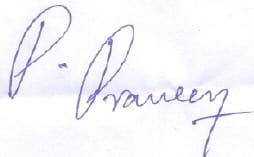 P. Praveen